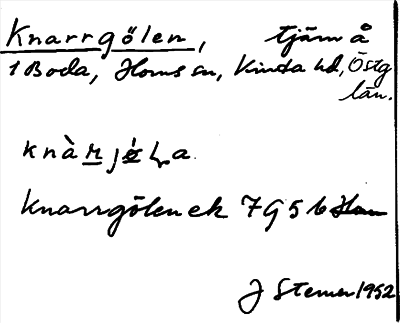 Knarrgölen, tjärn å
1 Boda, Horns sn, Kinda hd, Östg
län.
knàrjéḷa.
Knarrgölen ek 7G5b
J Stener 1952